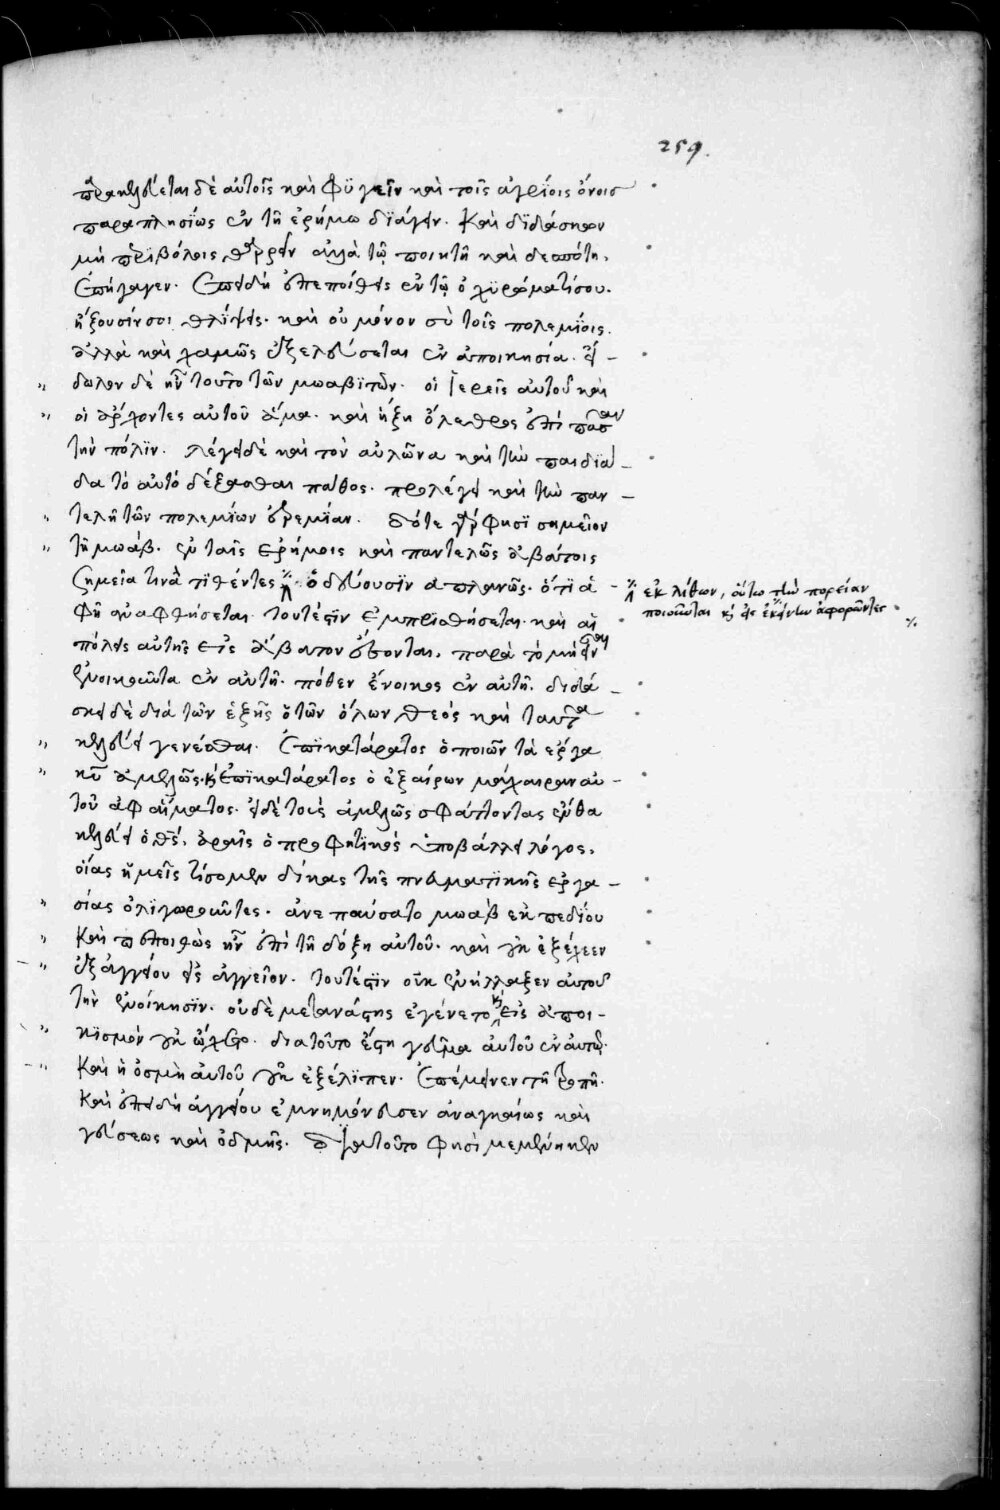 259.
παρακελεύεται δὲ αὐτοῖς καὶ φϋγεῖν καὶ τοῖς ἀγρίοις ὄνοισ
παραπλησίως ἐν τῆ ἐρήμω διάγειν. Καὶ διδάσκων
μὴ περιβόλοις θαρρεῖν ἀλλὰ τῶ ποιητῆ καὶ δεσπότη,
ἐπήγαγεν. Ἐπειδὴ ἐπεποίθεις ἐν τῶ ὀχυρώματί σου.
ἥξουσίν σοι θλίψεις. καὶ οὐ μόνον σὺ τοῖς πολεμίοις.
ἀλλὰ καὶ χαμῶς ἐξελεύσεται ἐν ἀποικησία. εἴ –
δωλον δὲ ἦν τοῦτο τῶν μωαβιτῶν. οἱ ἱερεῖς αὐτοῦ καὶ
οἱ ἄρχοντες αὐτοῦ ἅμα. καὶ ἥξη ὄλεθρος ἐπὶ πᾶσαν
τὴν πόλιν. λέγει δὲ καὶ τὸν αὐλῶνα καὶ τὴν παιδιά –
δα τὸ αὐτὸ δέξασθαι πάθος. προλέγει καὶ τὴν παν –
τελῆ τῶν πολεμίων ἐρεμίαν. δότε γάρ φησι σημεῖον
τῆ μωάβ. ἐν ταῖς ἐρήμοις καὶ παντελῶς ἀβάτοις
σημεῖα τινὰ τιθέντες ὁδεύουσιν ἀπλανῶς. ὅτι ἁ –
φῆ ἀναφθήσεται. τουτέστιν ἐμπρισθήσεται. καὶ αἱ
πόλεις αὐτῆς εἰς ἄβατον ἔσονται. παρὰ τὸ μὴ εἶναι
ἐνοικοῦντα ἐν αὐτῆ. πόθεν ἔνοικος ἐν αὐτῆ. διδά –
σκει δὲ διὰ τῶν ἑξῆς ὁ τῶν ὅλων θεὸς καὶ ταῦτα
κελεύει γενέσθαι. Ἐπικατάρατος ὁ ποιῶν τὰ ἔργα
κυ ἀμελῶς. κ ἐπικατάρατος ὁ ἐξαίρων μάχαιραν αὐ –
τοῦ ἀφ αἵματος. εἰ δὲ τοὺς ἀμελῶς σφάττοντας ἔνθα
κελεύει ὁ θς, ὁρᾶις ὁ προφητικὸς ὑποβάλλει λόγος,
οἵας ἡμεῖς τίσομεν δίκας τῆς πνευματικῆς ἐργα –
σίας ὀλιγωροῦντες. ἀνεπαύσατο μωὰβ ἐκ πεδίου
Καὶ πεποιθὼς ἦν ἐπὶ τῆ δόξη αὐτοῦ. καὶ οὐκ ἐξέχεεν
ἐξ ἀγγείου εἰς ἀγγεῖον. τουτέστιν οὐκ ἐνήλλαξεν αὐτοῦ
τὴν ἐνοίκησιν. οὐδὲ μετανάστης ἐγένετο κ εἰς ἀποι –
κισμὸν οὐκ ὤχετο. διατοῦτο ἔστη γεῦμα αὐτοῦ ἐν αὐτῶ.
Καὶ ἡ ὀσμὴ αὐτοῦ οὐκ ἐξέλιπεν. Ἐπέμεινεν τῆ τροπῆ.
Καὶ ἐπειδὴ ἀγγείου ἐμνημόνευσεν ἀναγκαίως καὶ
γεύσεως καὶ ὀδμῆς. διατοῦτο φησὶ μεμένηκεν
ἐκ λίθων, οὕτω τὴν πορείαν
ποιοῦνται κ εἰς ἐκεῖνων ἀφορῶντες